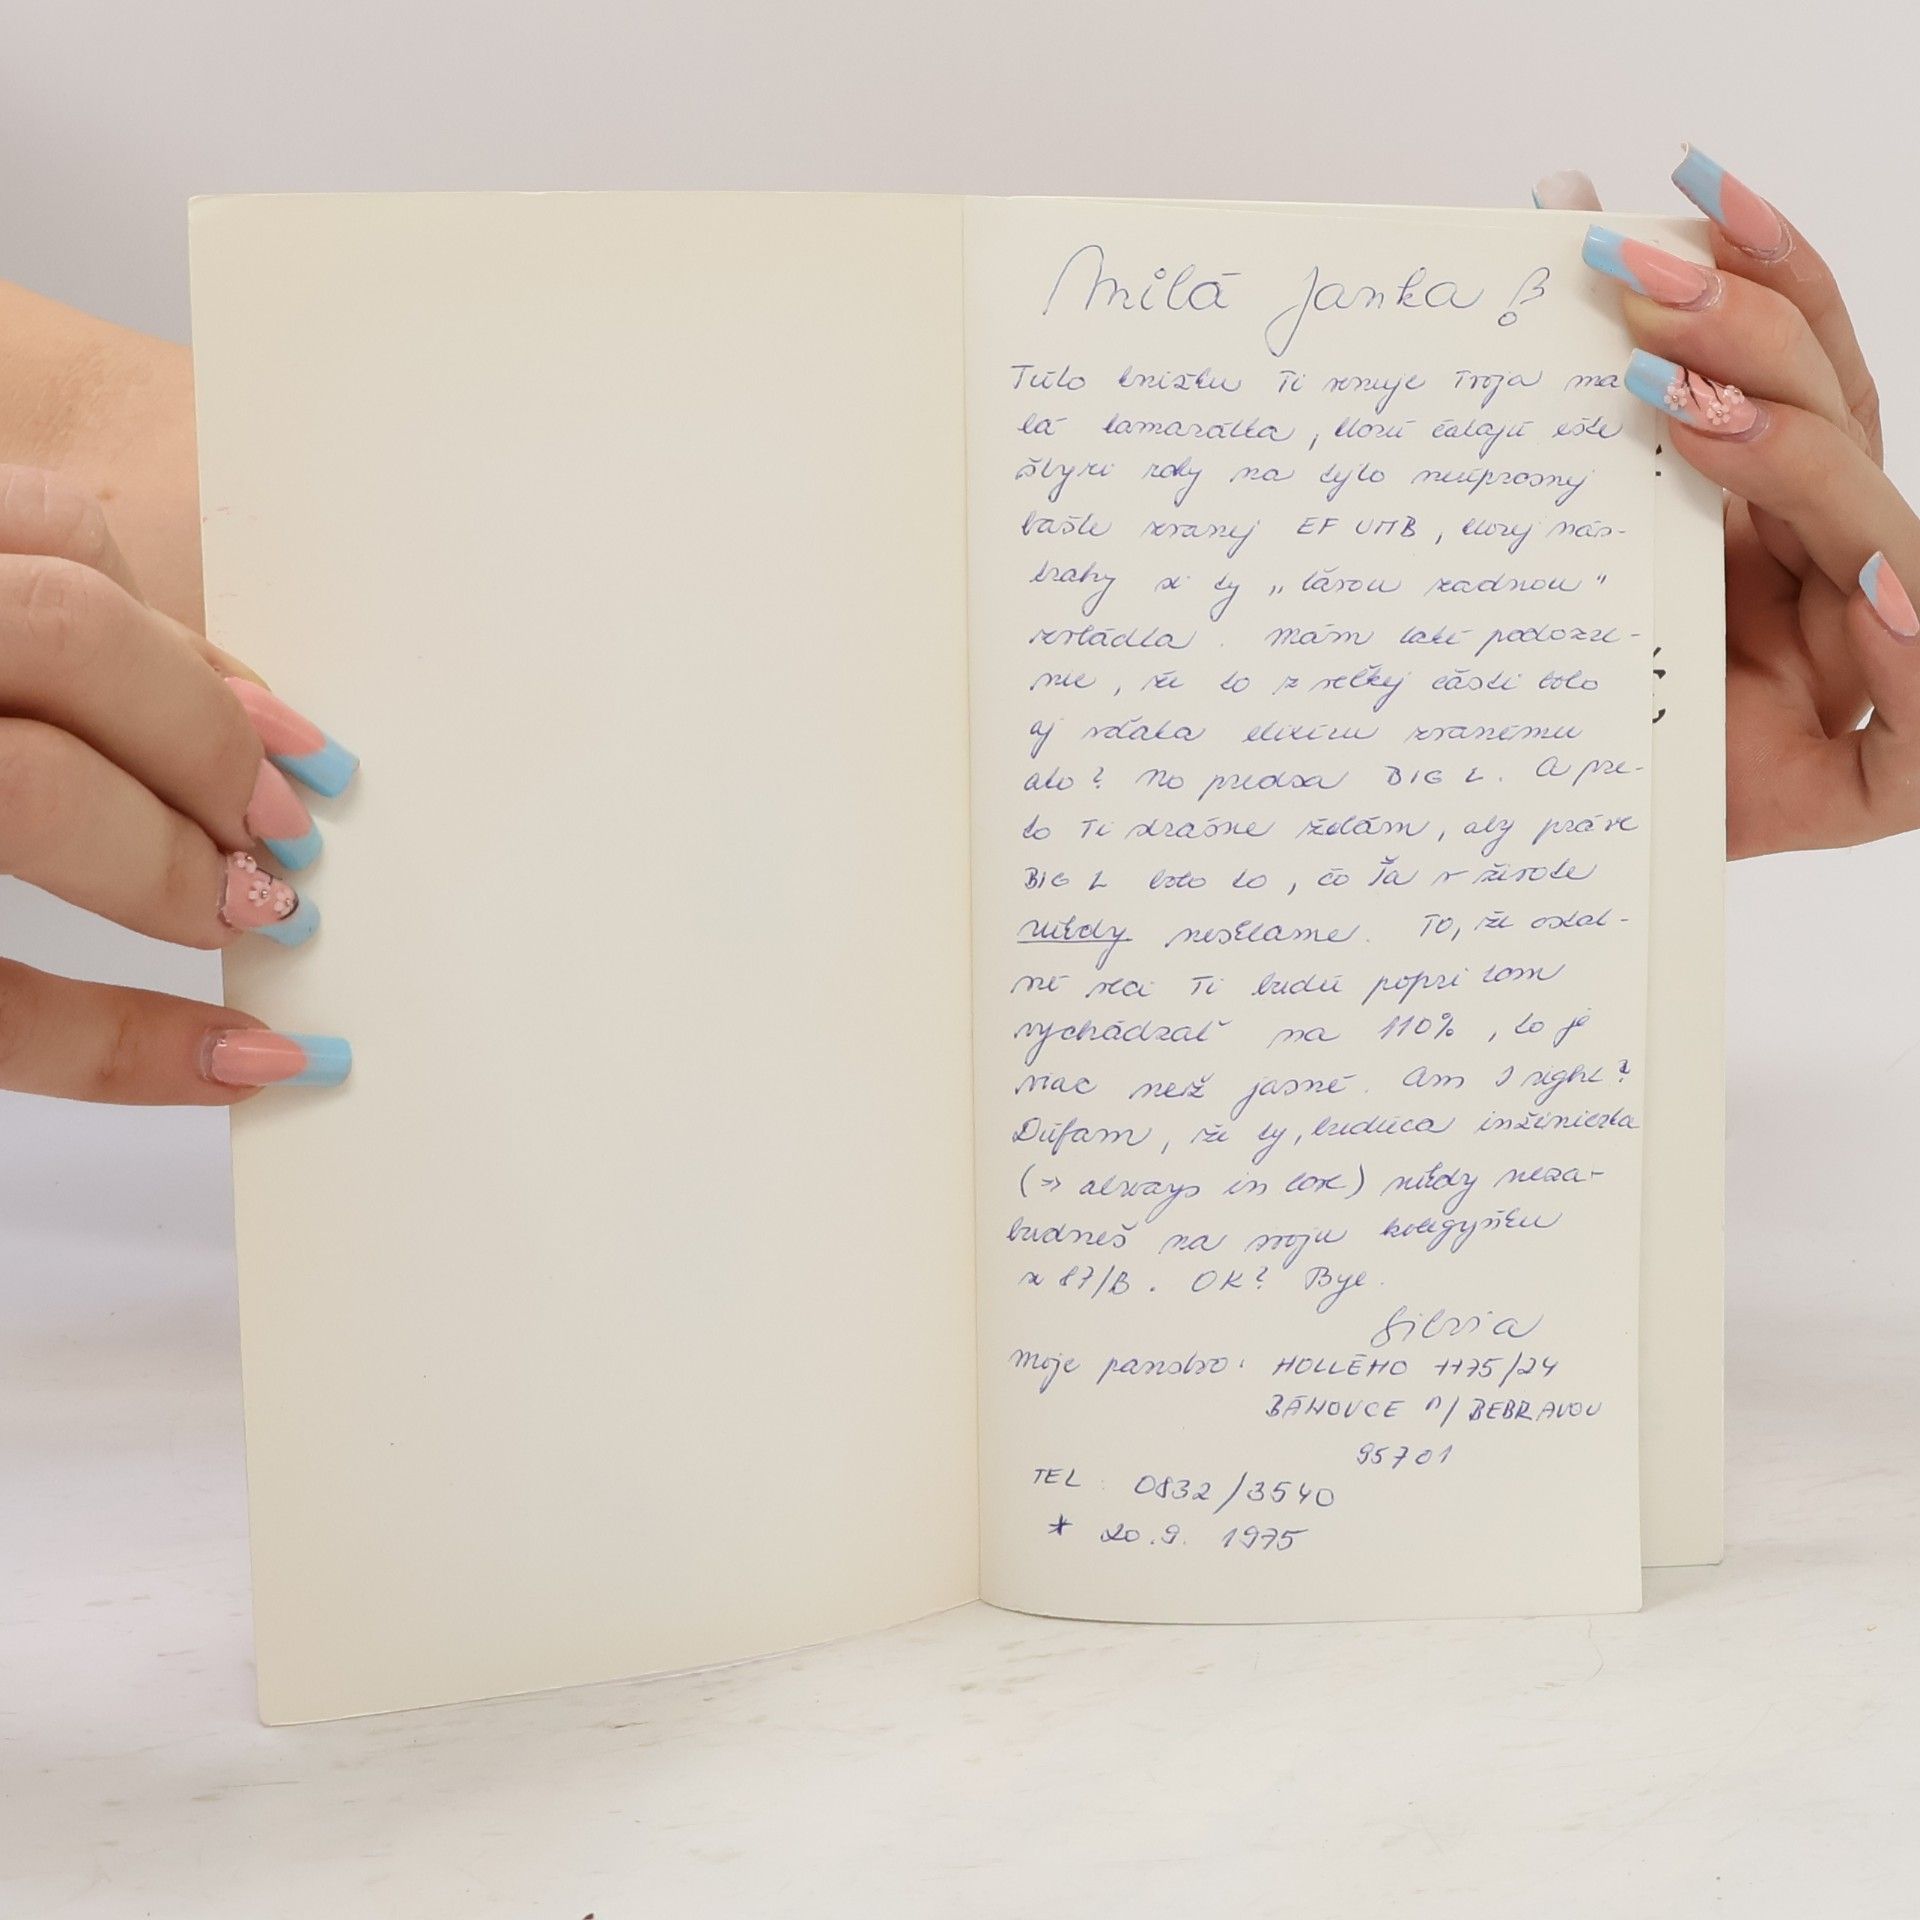 Milá Janka!
Túto knižku Ti venuje Tvoja ma
lá kamarátka, ktorú čakajú ešte
štyri roky na tejto neúprosnej
bašte zvanej EF UMB, ktorej nás-
trahy si ty „ľavou zadnou"
zvládla. Mám také podozre-
nie, že to z veľkej časti bolo
aj vďaka elixíru zvanému
ako? No predsa BIG L. A pre-
to Ti strašne želám, aby práve
BIG L bolo to, čo Ťa v živote
nikdy nesklame. To, že ostat-
né veci Ti budú popri tom
vychádzať na 110%, to je
viac než jasné. Am I right?
Dúfam, že ty, budúca inžinierka
(=> always in love) nikdy neza-
budneš na svoju kolegynku
z 87/B. OK? Bye.
Silvia
Moje panstvo: HOLLÉHO 1175/24
BÁNOVCE n/ BEBRAVOU
95701
TEL: 0832/3540
* 20.9. 1975